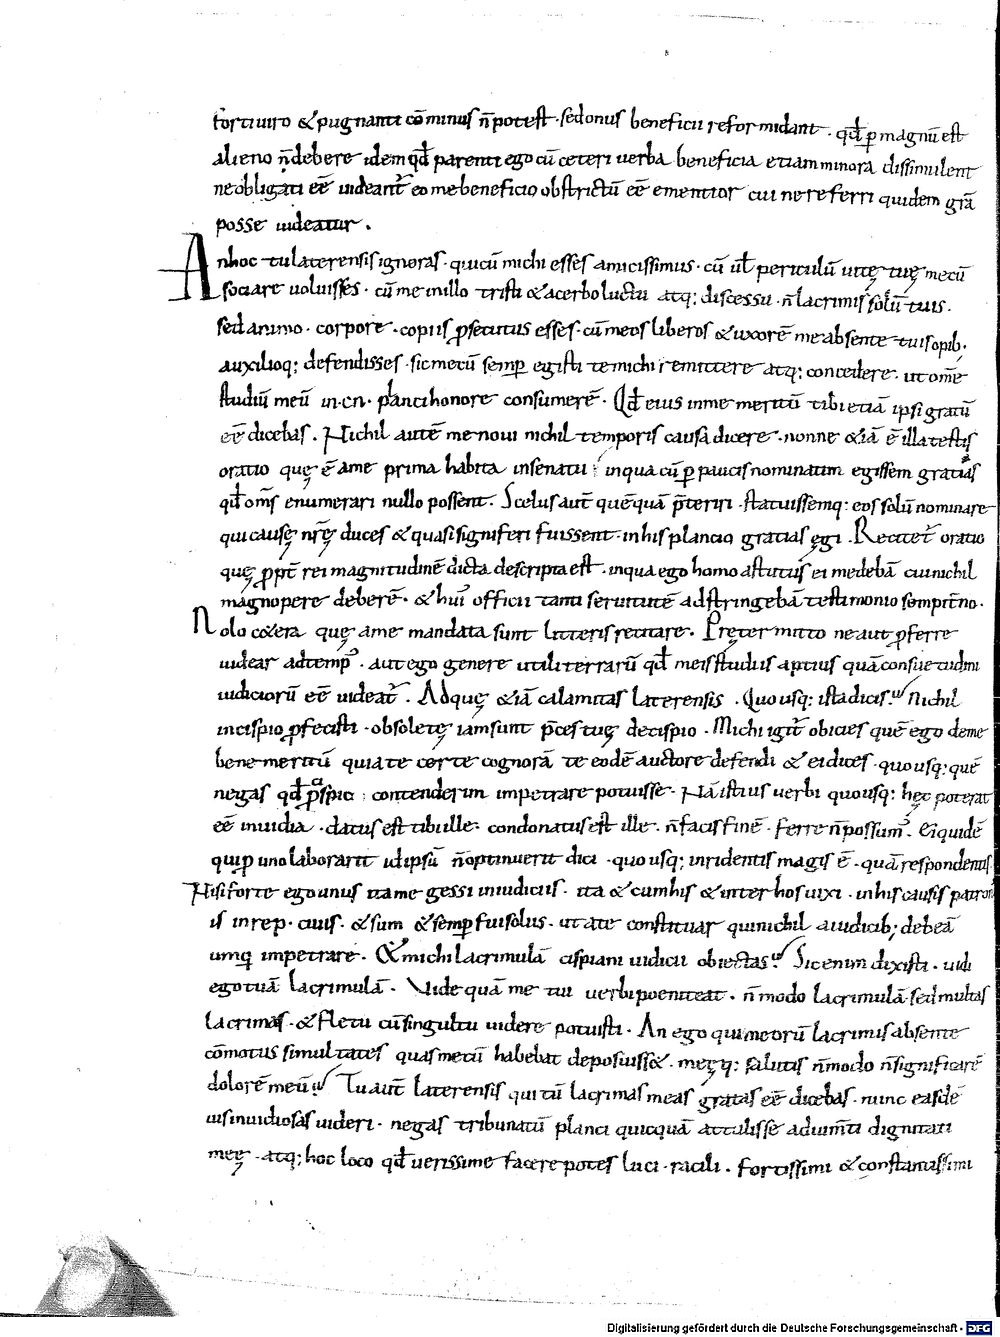 fortiuiro & pugnanti cōminus n̄ potest · sed onus beneficii reformidant · qđ p magnū est
alieno n̄ debere idem qđ parenti ego cū ceteri uerba beneficia etiam minora dissimulent
ne obligati eē uideant̄ eo me beneficio obstrictū eē ementior cui ne referri quidem grā
posse uideatur .
An hoc tu laterensis ignoras · qui cū michi esses amicissimus · cū ul̄ periculū uitę tuę mecū
sociare uoluisses · cū me in illo tristi & acerbo luctu atq; discessu · n̄ lacrimis solū tuis ·
sed animo · corpore · copiis psecutus esses · cū meos liberos & uxorē me absente tuis opib;
auxilioq; defendisses · sic mecū semp egisti te michi remittere atq; concedere · ut omē
studiū meū in · cn · planci honore consumerē · Qđ eius in me meritū tibi etiā ipsi gratū
eē dicebas . Nichil autē me noui nichil temporis causa dicere · nonne &iā ē illa testis
oratio quę ē a me prima habita in senatu in qua cū p paucis nominatim egissem gratias
qđ om̄s enumerari nullo possent . Scelus aut̄ quēquā p̄teriri · statuissemq; eos solū nominare
qui causę nr̄ę duces & quasi signiferi fuissent · in his plancio gratias ęgi . Recitet̄ oratio
quę ppt̄ rei magnitudinē dicta de scripta est · in qua ego homo astutus ei me debā cui nichil
magnopere deberē · & hui' officii tanti seruitutē adstringebā testimonio sempit̄no ·
Nolo c&era quę a me mandata sunt litteris recitare . Pretermitto ne aut pferre
uidear ad temp' · aut ego genere utiliterrarū qđ meis studiis aptius quā consuetudini
iudiciorū eē uideat̄ . Adquę &iā calamitas laterensis . Quo usq; ista dicis? Nichil
in cispio pfecisti · obsoletę iam sunt p̄ces tuę de cispio · Michi igit̄ obicies quē ego de me
bene meritū quia te certe cognorā te eodē auctore defendi & ei dices · quo usq; quē
negas qđ p cispio contenderim impetrare potuisse · Nā istius uerbi quo usq; hęc poterat
eē inuidia · datus est tibi ille · condonatus est ille · n̄ facis finē · ferre n̄ possum' · Ei quidē
qui p uno laborarit id ipsū n̄ optinuerit dici · quo usq; inridentis magis ē · quā respondentis
Nisi forte ego unus ita me gessi in iudiciis · ita & cum his & inter hos uixi · in his causis patron
is in rep · ciuis · & sum & semp fui solus · ut a te constituar qui nichil a iudicib; debeā
umq impetrare · & michi lacrimulā cispiani iudicii obiectas? Sic enim dixisti · uidi
ego tuā lacrimulā · Vide quā me tui uerbi poeniteat · n̄ modo lacrimulā sed multas
lacrimas · & fletū cū singultu uidere potuisti · An ego qui meorū lacrimis absente
cōmotus simultates quas mecū habebat deposuiss& · meęq; salutis n̄ modo n̄ significarē
dolorē meū? Tu aut̄ laterensis qui tū lacrimas meas gratas eē dicebas · nunc easdē
uis inuidiosas uideri · negas tribunatū planci quicquā attulisse adium̄ti dignitati
meę · atq; hoc loco qđ uerissime facere potes luci · racili . fortissimi & constantissimi
Digitalisierung gefördert durch die Deutsche Forschungsgemeinschaft - DFG